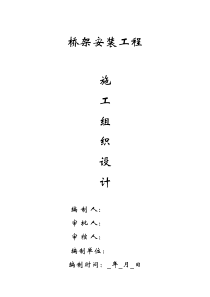 桥架安装工程
施
工
组
织
设
计
编 制 人：
审 批 人：
审 核 人：
编制单位：
编制时间：_年_月_日